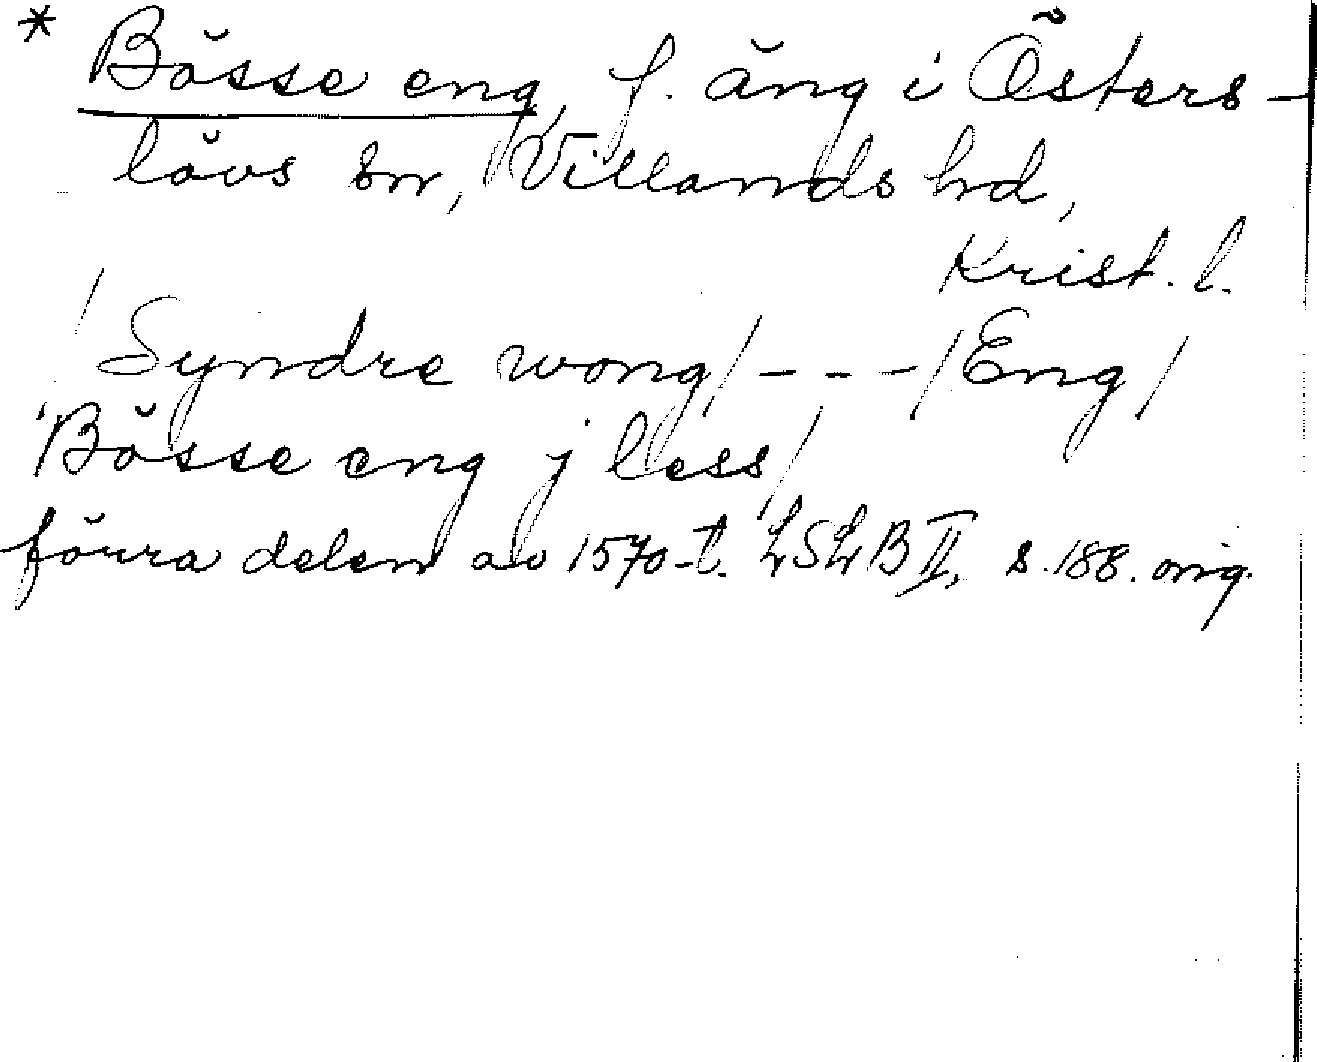 * Bösse eng, f. äng i Östers-
lövs sn, Villands hd,
Krist. l.
/Syndre wong/ - - - /Eng/
Bösse eng j less/
förra delen av 1570-t. LSLB II, s. 188. orig.